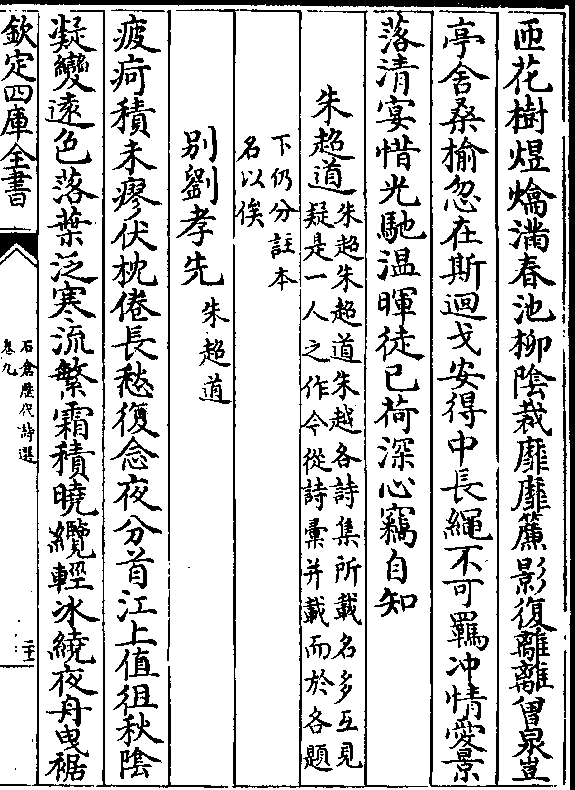 匝花樹熅爚滿春池柳陰裁靡靡簾影復離離曾泉豈
亭舍桑榆忽在斯迴戈安得中長繩不可羈冲情愛景
落清宴惜光馳温暉徒已荷深心竊自知
朱超道朱超朱超道朱越各詩集所載名多互見
疑是一人之作今從詩彙并載而於各題
下仍分註本
名以俟
别劉孝先朱超道
疲疴積未瘳伏枕倦長愁復念夜分首江上值徂秋陰
凝變遠色落葉泛寒流繁霜積曉纜輕冰繞夜舟曳裾
欽定四庫全書
石倉歴代詩選
卷九
二十